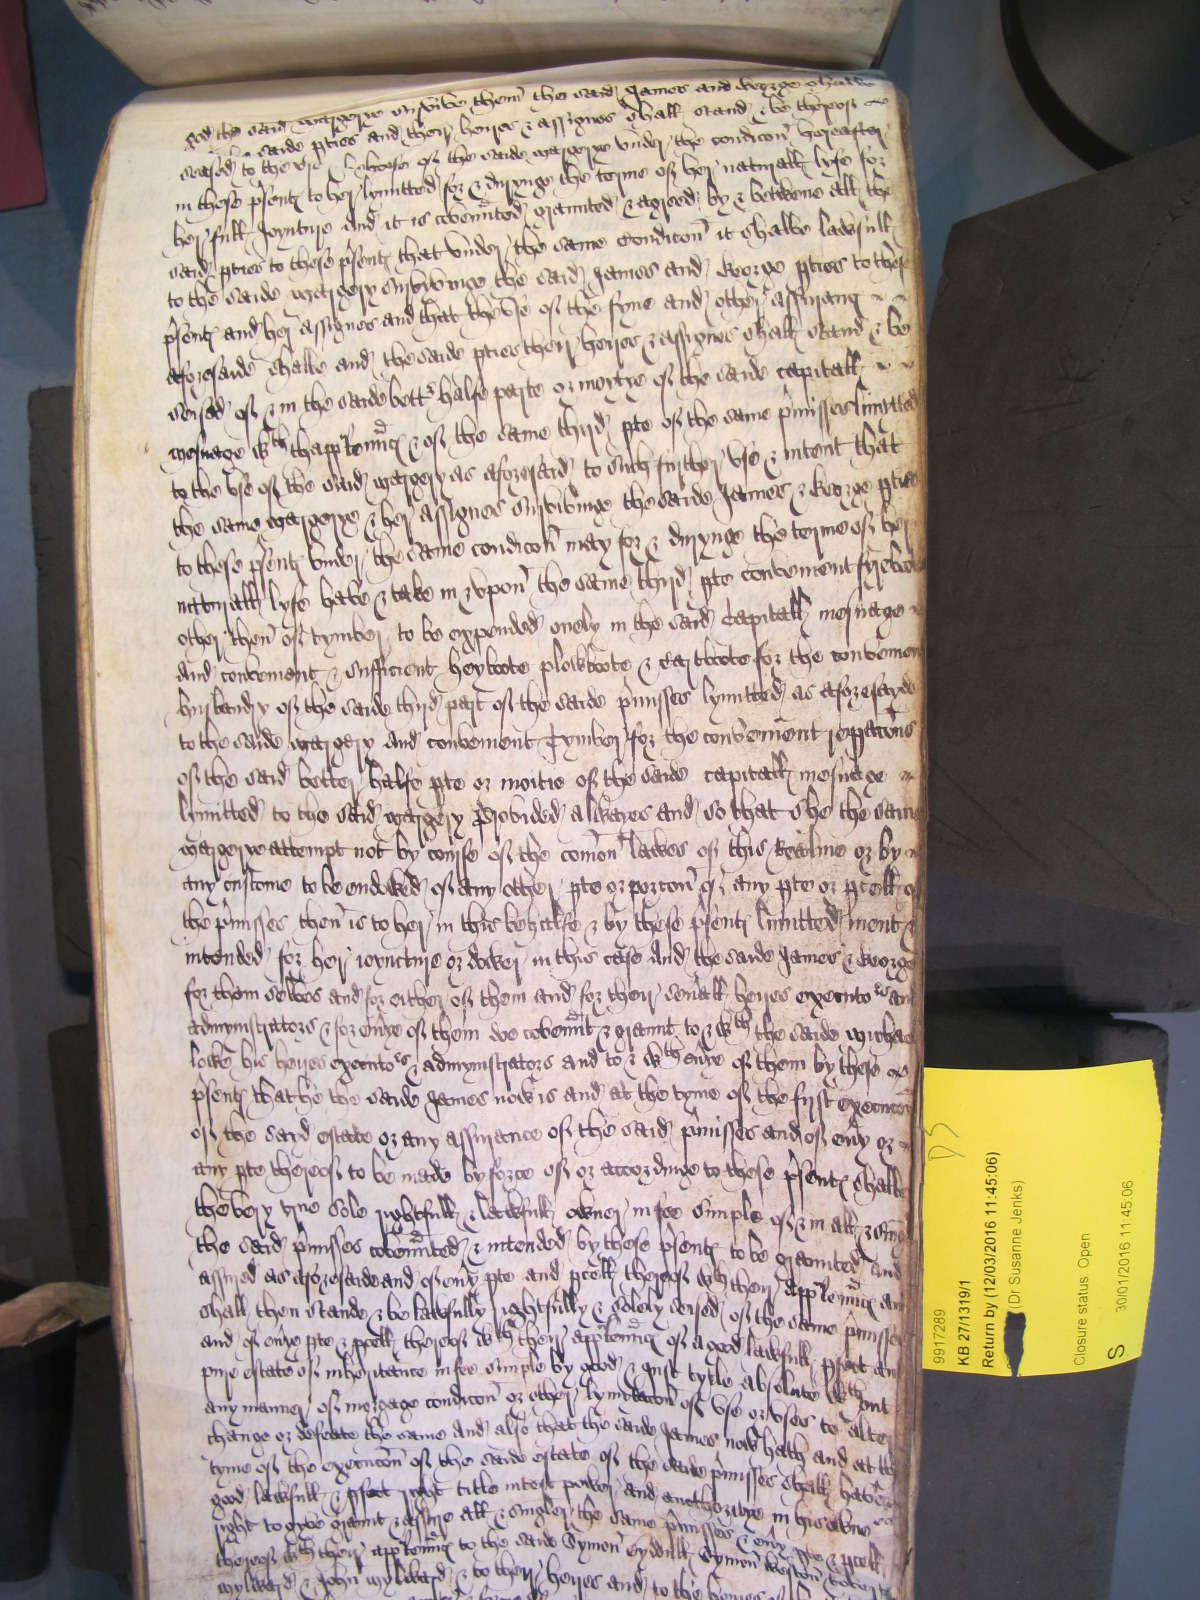 And the said Margerye survive them the said James and George shalbe
saide pties and their heires & assignes shall stand & be therof
seased to the use & behoofe of the saide Margerye under the condicon hereafter
in these psents to her lymitted for & durynge the terme of her naturall lyfe for
her full Joynture And it is covennted graunted & agreed by & betwene all the
said pties to these psents that under the same Condicon it shalbe lawfull
to the saide Margery survivinge the said James and George pties to these
psents and her assignes and that the use of the fyne and other assuranc
aforesaide shalbe and the saide pties their heires & assignes shall stand & be
seised of & in the saide bettr halfe parte or moitye of the saide capitall
mesuage wth thapptennces & of the same third pte of the same pmisses limitted
to the use of the said Margery as aforesaid to such further use & intent that
the same Margerye & her assignes survivinge the saide James & George pties
to these psents under the same condicon may for & durynge the terme of her
naturall lyfe have & take in & upon the same third pte convenient fyrebote
other then of tymber to be expended onely in the said Capitall mesuage
And convenient & sufficient heybote plowbote & Cartbote for the convenient
husbandry of the saide third part of the saide pmisses lymitted as aforesayde
to the saide Margery And convenient Tymber for the convenient repacons
of the said better halfe pte or moitie of the saide capitall mesuage
lymitted to the said Margery Provided alwayes and so that she the saide
Margerye attempt not by course of the comon lawes of this Realme or by
any custome to be endowed of any other pte or porcon of any pte or pcell of
the pmisses then is to her in this behalfe & by these psents limitted ment &
intended for her ioyncture or dower in this case And the saide James & George
for them selves and for either of them and for their severall heires executors and
admynistrators & for evrye of them doe covennt & graunt to & wth the saide Michael
loke his heires executors & admynistrators and to & wth evrye of them by these
psents that he the saide James now is and at the tyme of the first execucon
of the said estate or any assurance of the said pmisses and of evry or
any pte thereof to be made by force of or accordinge to these psents shalbe
the very true sole rightfull & lawfull owner in fee simple of & in all & singuler
the said pmisses covennted & intended by these psents to be graunted And
assured as aforesaide and of evry pte and pcell thereof wth their apptennces and
shall then stande & be lawfully rightfully & solely seised of the same pmisses
and of evrye pte & pcell thereof wth their apptennces of a good lawfull pfect and
pure estate of inheritance in fee simple by good & iust tytle absolute wthout
any manner of morgage condicon or other lymitacon of use or uses to alter
change or defeate the same And also that the saide James now hath and at the
tyme of the execucon of the saide estate of the saide pmisses shall have
good lawfull & pfect right title interest power and aucthoritye in his owne
right to gyve graunt & assure all & singler the same pmisses & evry pte & pcell
thereof wth their apptennces to the saide Symon Symon Weston
& John & to their heires and to the heires of
9917289
KB 27/1319/1
Return by (12/03/2016 11:45:06)
(Dr Susanne Jenks)
Closure status: Open
S
30/01/2016 11:45:06